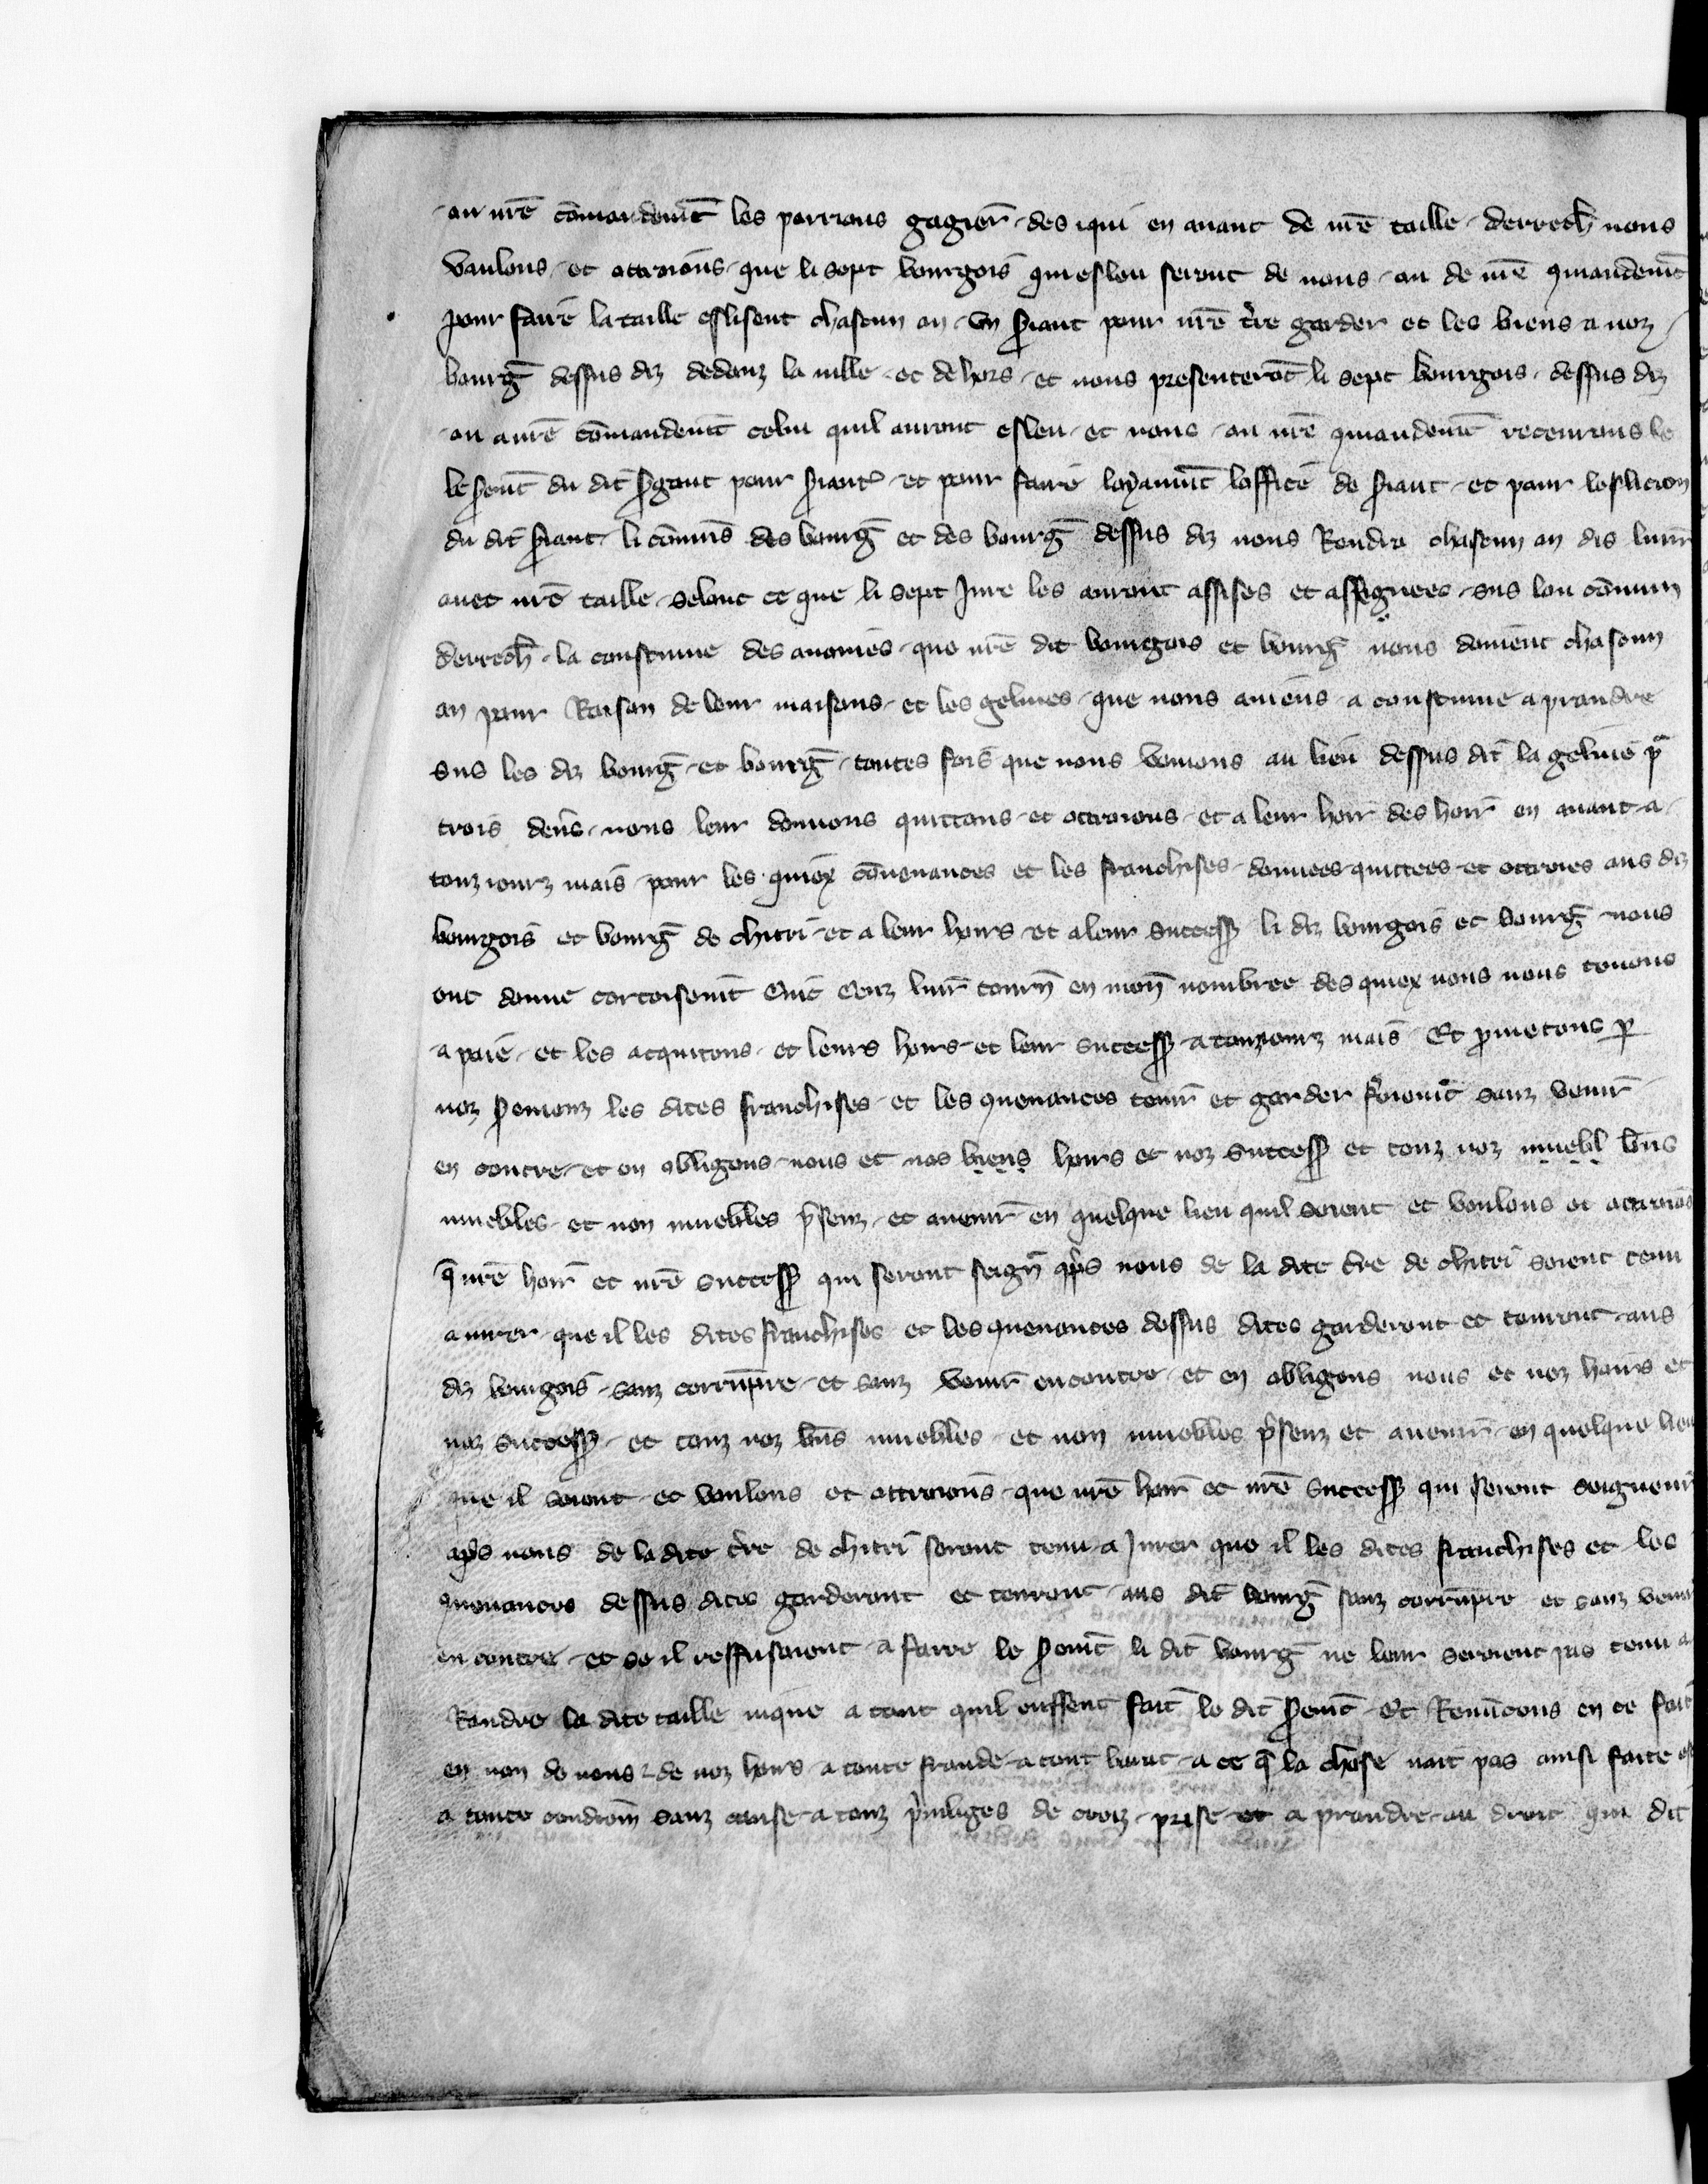 ou nr̄e cōmandemt̄ les porrions gagier̄ des iqui en auant de nr̄e taille derrech̄ nous
voulons et ottroions que li sept bourgois qui esleu seront de nous ou de nr̄e ꝯmandemt̄
pour faire la taille eslisent chascun an un s̄iant pour nr̄e t̄re garder et les biens a noz
bourḡ dessus diz dedanz la uille et dehors et nous presenterōt li sept bourgois dessus diz
ou a nr̄e cōmandemt̄ celui quil auront esleu et nous ou nr̄e ꝯmandemt̄ receurons le
le s̄emt̄ du dit s̄gant pour s̄iant et pour faire loyaumt̄ loffice de s̄iant et pour leslecion
du dit s̄iant li cōmuns des bourḡ et des bourḡ dessus diz nous Rendra chascun an dis liur̄
auec nr̄e taille selonc ce que li sept Jure les auront assises et assignees sus lou cōmun
derrech̄ la coustume des auoines que nr̄e dit bourgois et bourḡ nous doiuent chascun
an pour Raison de leur maisons et les gelines que nous auiens a coustume a prandre
sus les diz bourḡ et bourḡ toutes fois que nous venions au lieu dessus dit la geline pͬ
trois den̄s nous leur donnons quittons et ottroions et a leur hoir des hoir̄ en auant a
touz iourz mais pour les quiex cōuenances et les franchises donnees quittees et ottroies aus diz
bourgois et bourḡ de chitri et a leur hoirs et a leur success̄ li diz bourgois et bourḡ nous
ont donne cortoisemt̄ Cent liur̄ tourn̄ en mon̄ nombree des quiex nous nous tenons
a paie et les acquitons et leurs hoirs et leur success̄ a touz iourz mais Et ꝓmetons ꝑ
noz s̄emenz les dites franchises et les ꝯuenances tenir̄ et garder f̄memt̄ sanz venir̄
en contre et en obligons nous et nos biens hoirs et noz success̄ et touz noz muebl̄ bn̄s
muebles et non muebles p̄senz et auenir̄ en quelque lieu quil soient et voulons et ottroiōs
q̄ nr̄e hoir̄ et nr̄e success̄ qui seront seign̄ ap̄s nous de la dite t̄re de chitri soient tenu
a iurer que il les dites franchises et les ꝯuenances dessus dites garderont et tenront aus
diz bourgois sanz corrūpre et sanz venir̄ encontre et en obligons nous et noz hoirs et
noz success̄ et touz noz bn̄s muebles et non muebles p̄senz et auenir̄ en quelque lieu
que il soient et voulons et ottroions que nr̄e hoir̄ et nr̄e success̄ qui seront seigneur
ap̄s nous de la dite t̄re de chitri seront tenu a Jurer que il les dites franchises et les
ꝯuenances dessus dites garderont et tenront aus dit bourḡ sanz corrūpre et sanz venir
en contre et se il reffusoient a faire le s̄emt̄ li dit bourḡ ne leur seroient pas tenu a
Randre la dite taille iuque a tant quil eussent fait le dit s̄emt̄ Et Renūcons en ce fait
en non de nous ⁊ de noz hoirs a toute fraude a tout barat a ce q̄ la chose nait pas ainsi faite
a toute condicion̄ sanz cause a touz p̄uileges de croiz prise et a prandre au droit qui dit